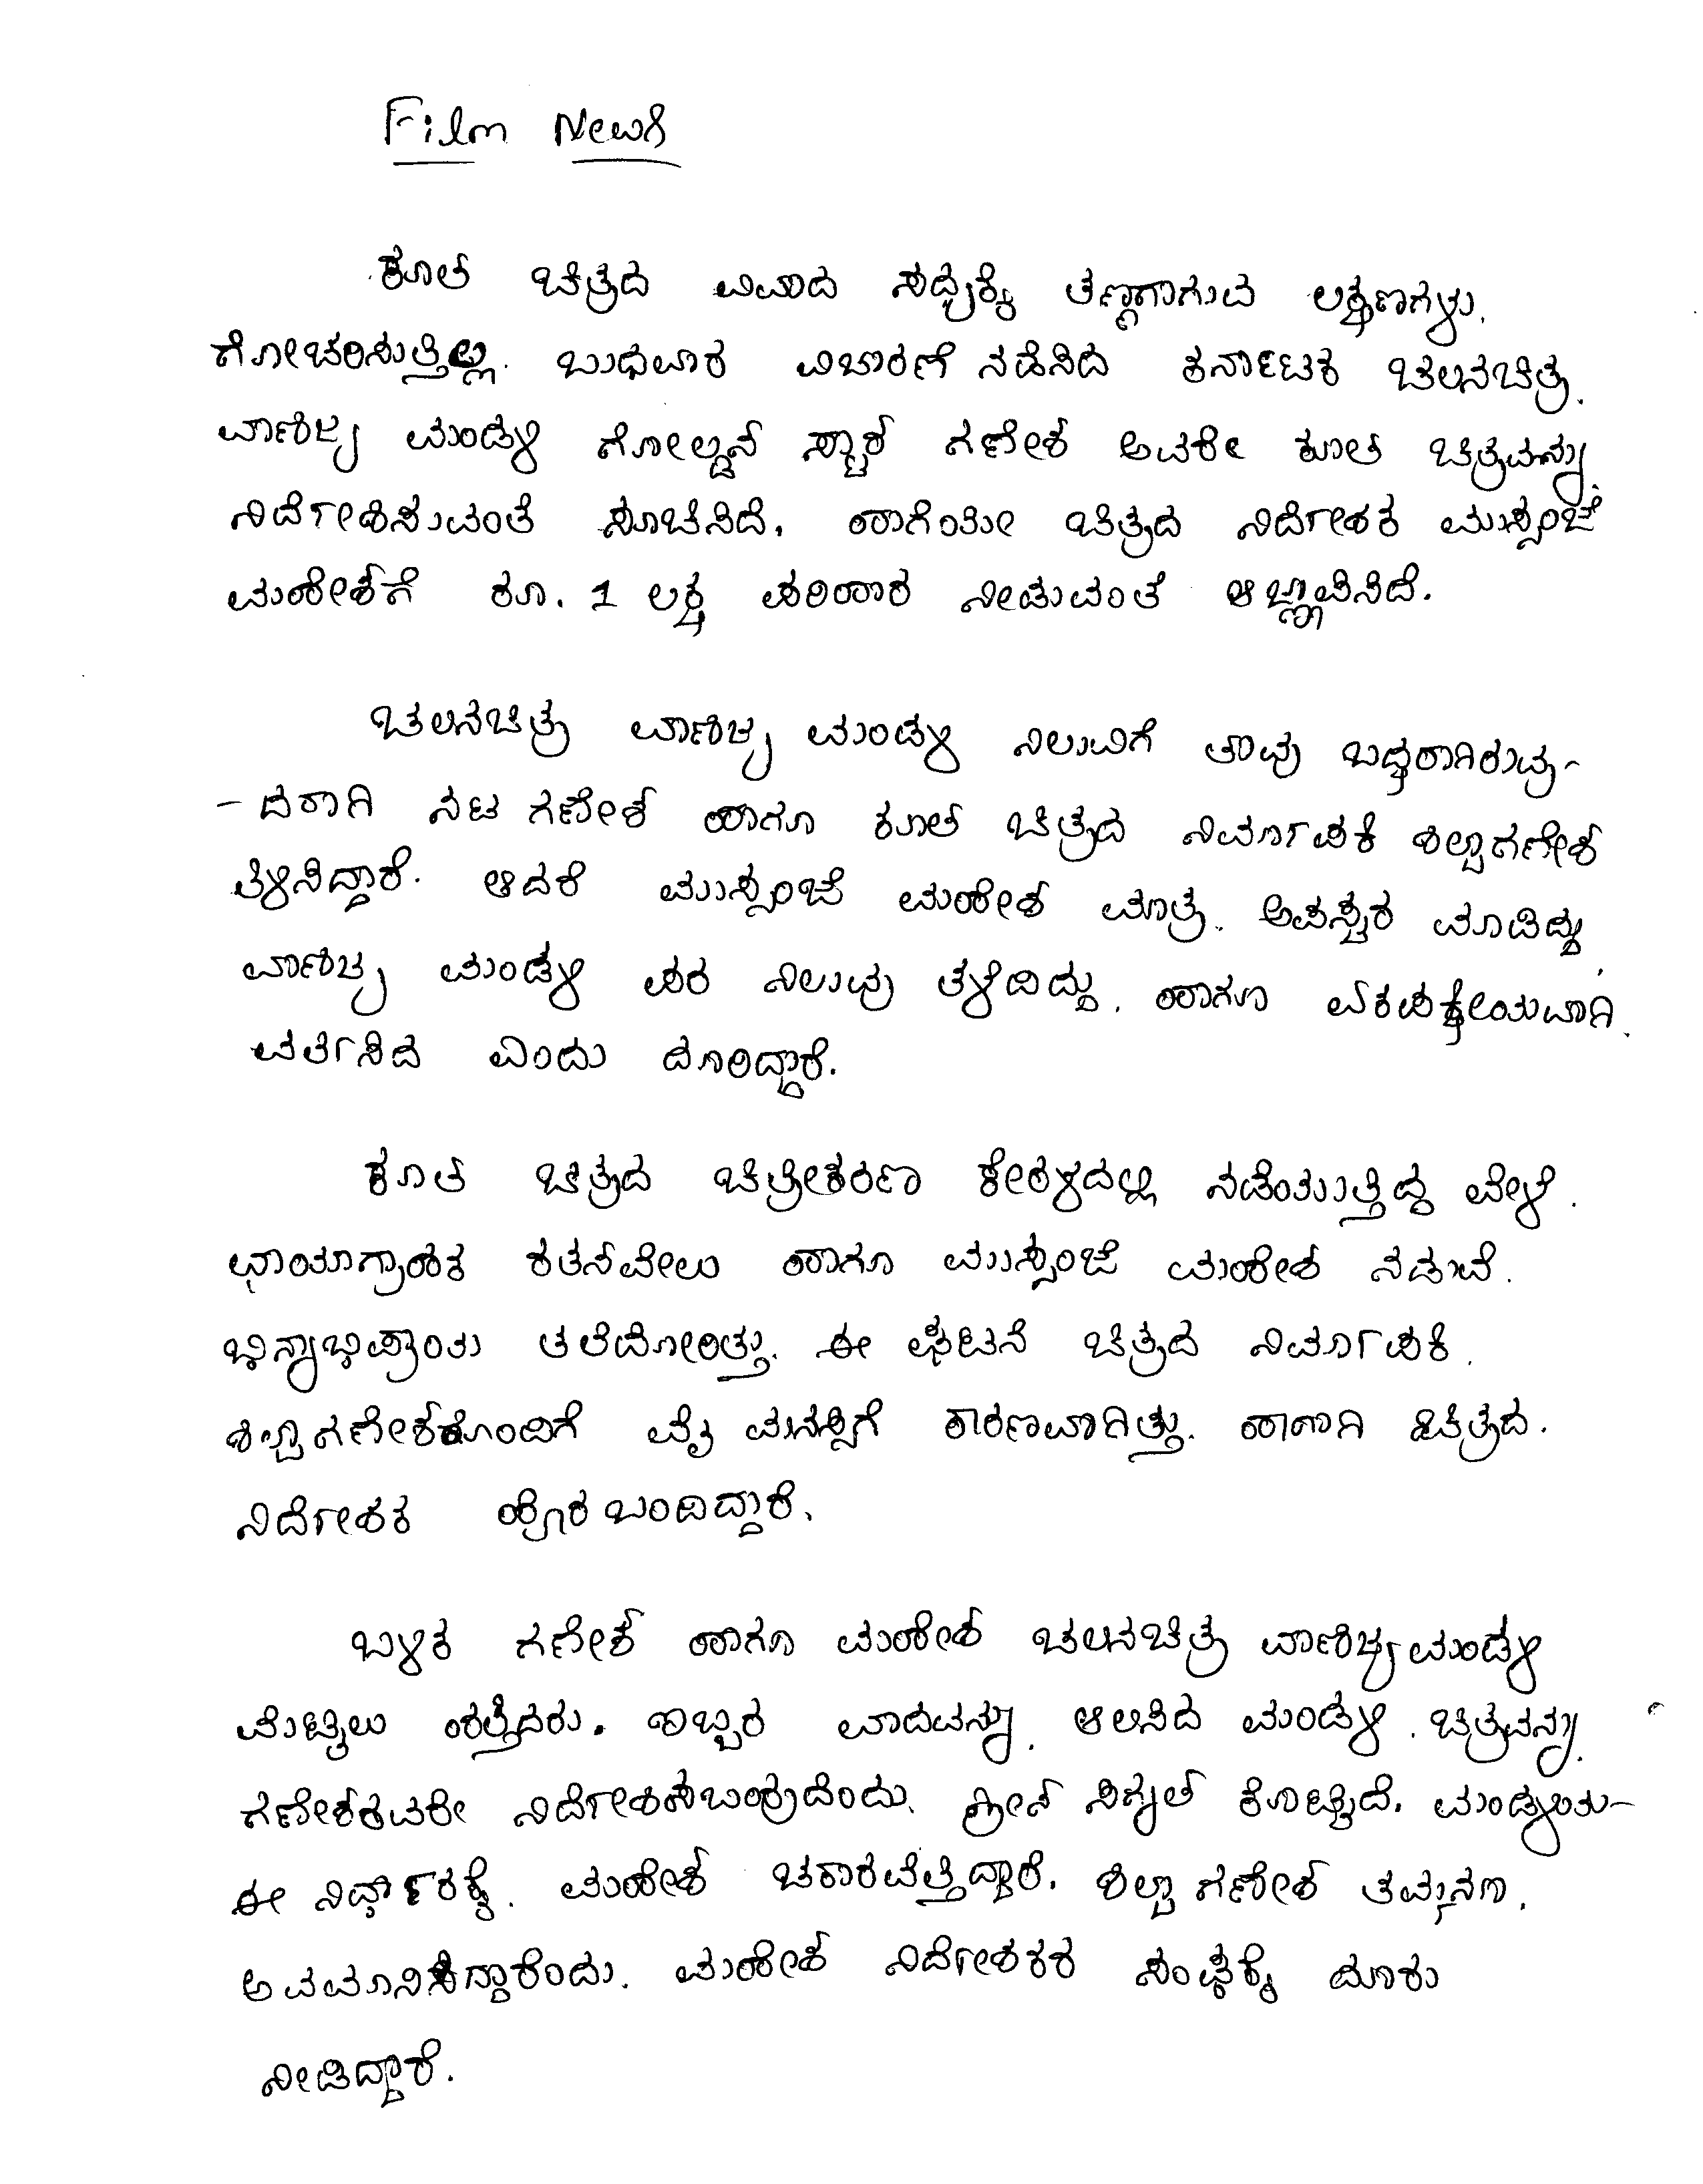 Film News
ಕೂಲ್ ಚಿತ್ರದ ವಿವಾದ ಸದ್ಯಕ್ಕೆ ತಣ್ಣಗಾಗುವ ಲಕ್ಷಣಗಳು
ಗೋಚರಿಸುತ್ತಿಲ್ಲ. ಬುಧವಾರ ವಿಚಾರಣೆ ನಡೆಸಿದ ಕರ್ನಾಟಕ ಚಲನಚಿತ್ರ
ವಾಣಿಜ್ಯ ಮಂಡಳಿ ಗೋಲ್ಡನ್ ಸ್ಟಾರ್ ಗಣೇಶ್ ಅವರೇ ಕೂಲ್ ಚಿತ್ರವನ್ನು
ನಿರ್ದೇಶಿಸುವಂತೆ ಸೂಚಿಸಿದೆ. ಹಾಗೆಯೇ ಚಿತ್ರದ ನಿರ್ದೇಶಕ ಮುಸ್ಸಂಜೆ
ಮಹೇಶ್‌ಗೆ ರೂ. 1 ಲಕ್ಷ ಪರಿಹಾರ ನೀಡುವಂತೆ ಆಜ್ಞಾಪಿಸಿದೆ.
ಚಲನಚಿತ್ರ ವಾಣಿಜ್ಯ ಮಂಡಳಿ ನಿಲುವಿಗೆ ತಾವು ಬದ್ಧರಾಗಿರುವು-
-ದರಾಗಿ ನಟ ಗಣೇಶ್ ಹಾಗೂ ಕೂಲ್ ಚಿತ್ರದ ನಿರ್ಮಾಪಕಿ ಶಿಲ್ಪಾಗಣೇಶ್
ತಿಳಿಸಿದ್ದಾರೆ. ಆದರೆ ಮುಸ್ಸಂಜೆ ಮಹೇಶ್ ಮಾತ್ರ. ಅಪಸ್ವರ ಮಾಡಿದ್ದು
ವಾಣಿಜ್ಯ ಮಂಡಳಿ ಪರ ನಿಲುವು ತಳೆದಿದ್ದು, ಹಾಗೂ ಏಕಪಕ್ಷೀಯವಾಗಿ
ವರ್ತಿಸಿದೆ ಎಂದು ದೂರಿದ್ದಾರೆ.
ಕೂಲ್ ಚಿತ್ರದ ಚಿತ್ರೀಕರಣ ಕೇರಳದಲ್ಲಿ ನಡೆಯುತ್ತಿದ್ದ ವೇಳೆ.
ಛಾಯಾಗ್ರಾಹಕ ರತನವೇಲು ಹಾಗೂ ಮುಸ್ಸಂಜೆ ಮಹೇಶ್ ನಡುವೆ.
ಭಿನ್ನಾಭಿಪ್ರಾಯ ತಲೆದೋರಿತ್ತು. ಈ ಘಟನೆ ಚಿತ್ರದ ನಿರ್ಮಾಪಕಿ.
ಶಿಲ್ಪಾಗಣೇಶ್‌ರೊಂದಿಗೆ ವೈ ಮನಸ್ಸಿಗೆ ಕಾರಣವಾಗಿತ್ತು. ಹಾಗಾಗಿ ಚಿತ್ರದ.
ನಿರ್ದೇಶಕ ಹೊರ ಬಂದಿದ್ದಾರೆ.
ಬಳಿಕ ಗಣೇಶ್ ಹಾಗೂ ಮಹೇಶ್ ಚಲನಚಿತ್ರ ವಾಣಿಜ್ಯ ಮಂಡಳಿ
ಮೆಟ್ಟಿಲು ಹತ್ತಿದರು. ಇಬ್ಬರ ವಾದವನ್ನು ಆಲಿಸಿದ ಮಂಡಳಿ. ಚಿತ್ರವನ್ನು
ಗಣೇಶ್‌ರವರೇ ನಿರ್ದೇಶಿಸಬಹುದೆಂದು ಗ್ರೀನ್ ಸಿಗ್ನಲ್ ಕೊಟ್ಟಿದೆ. ಮಂಡಳಿಯ-
ಈ ನಿರ್ಧಾರಕ್ಕೆ. ಮಹೇಶ್ ಚಕಾರವೆತ್ತಿದ್ದಾರೆ. ಶಿಲ್ಪಾ ಗಣೇಶ್ ತಮ್ಮನ್ನು.
ಅವಮಾನಿಸಿದ್ದಾರೆಂದು. ಮಹೇಶ್ ನಿರ್ದೇಶಕರ ಸಂಘಕ್ಕೆ ದೂರು
ನೀಡಿದ್ದಾರೆ.